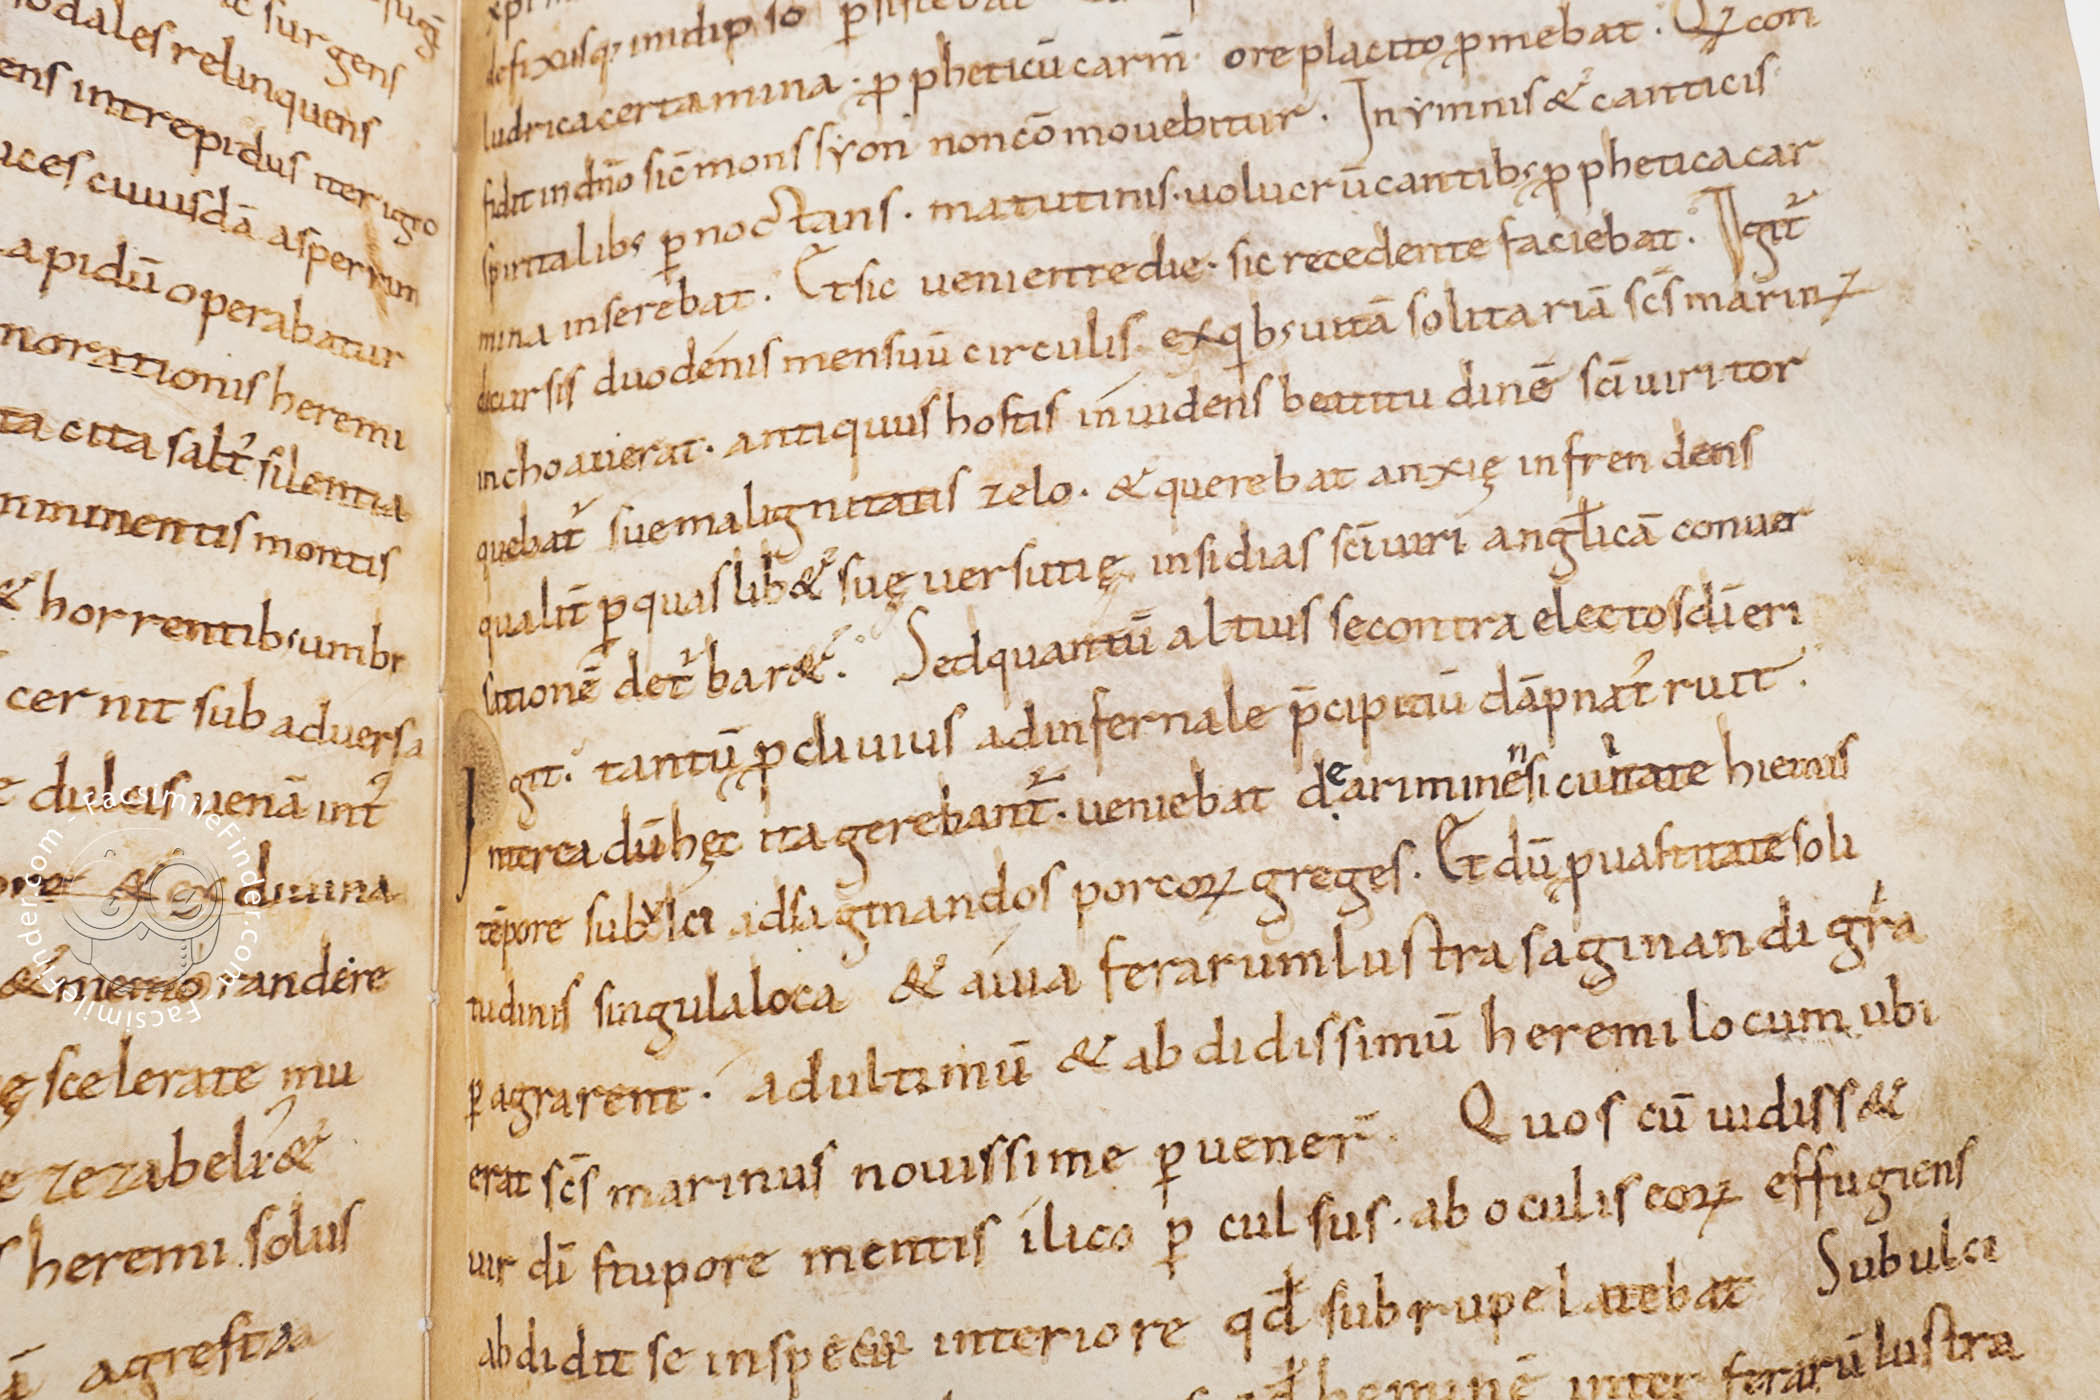 sug̅
surgens
odales relinquens
ens intrepidus iter igro
ices cuiusdā asperrim
lapidū operabatur
norationis heremi
ta cita salt̄ silentia
mminentis montis
& horrentibs umbr
cernit sub aduersa
e dulcis uenā int̄
& ex diuina
& memorandere
ę scelerate mu
e zezabeli &
s heremi solus
ā agrestia
defixusq; inidipso psistebat
ludricacertamina · ppheticū carm̄ ore placito pmebat . Qꝫ con
fidit in dn̄o sic̄ mons syon non cōmouebitur . In ymnis & canticis
spiritalibs pnoctans . matutinis · uolucrū cantibs pphetica car
mina inserebat . Et sic ueniente die · sic recedente faciebat . Igit̄
decursis duodenis mensuū circulis exqbs uitā solitariā sc̄s marinꝫ
inchoauerat . antiquus hostis inuidens beatitudinē sc̄i uiri tor
quebat̄ sue malignitatis zelo . & querebat anxię infrendens
qualit̄ pquaslib& suę uersutię insidias sc̄i uiri anglicā conuer
sationē det̄bar& . Sed quantū altius se contra electos dī eri
git . tantū pcliuius ad infernale p̄cipitiū dāpnat̄ ruit .
Interea dū hęc ita gerebant̄ . ueniebat de ariminēnsi ciuitate hiemis
tēpore subulci ad saginandos porcoꝝ greges . Et dū p uastitate soli
tudinis singula loca & auia ferarum lustra saginandi gra
pagrarent . ad ultimū & abdidissimū heremi locum ubi
erat sc̄s marinus nouissime puener̄ . Quos cū uidiss&
uir dī stupore mentis ilico pculsus . ab oculis eoꝝ effugiens
abdidit se in specu interiore qd̄ sub rupe latebat Subulci
qd̄ hominē inter ferarū lustra
FacsimileFinder.com · FacsimileFinder.com